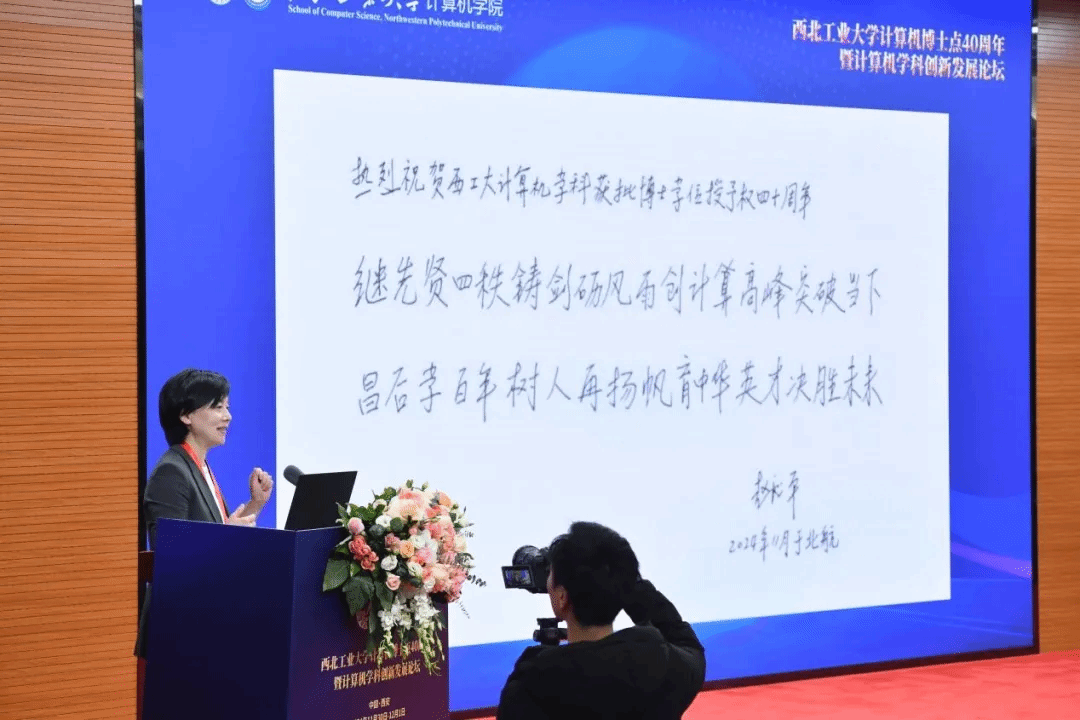 大学计算机学院
School of Computer Science, Northwestern Polytechnical University
西北工业大学计算机博士点40周年
暨计算机学科创新发展论坛
热烈祝贺西工大计算机学科获批博士学位授予权四十周年
继先贤四秩铸剑砺风雨创计算高峰突破当下
昌后学百年树人再扬帆育中华英才决胜未来
赵沁平
2024年11月于北航
西北工业大学计算机博士点40
暨计算机学科创新发展论坛
中国·西安
11月30日-12月1日